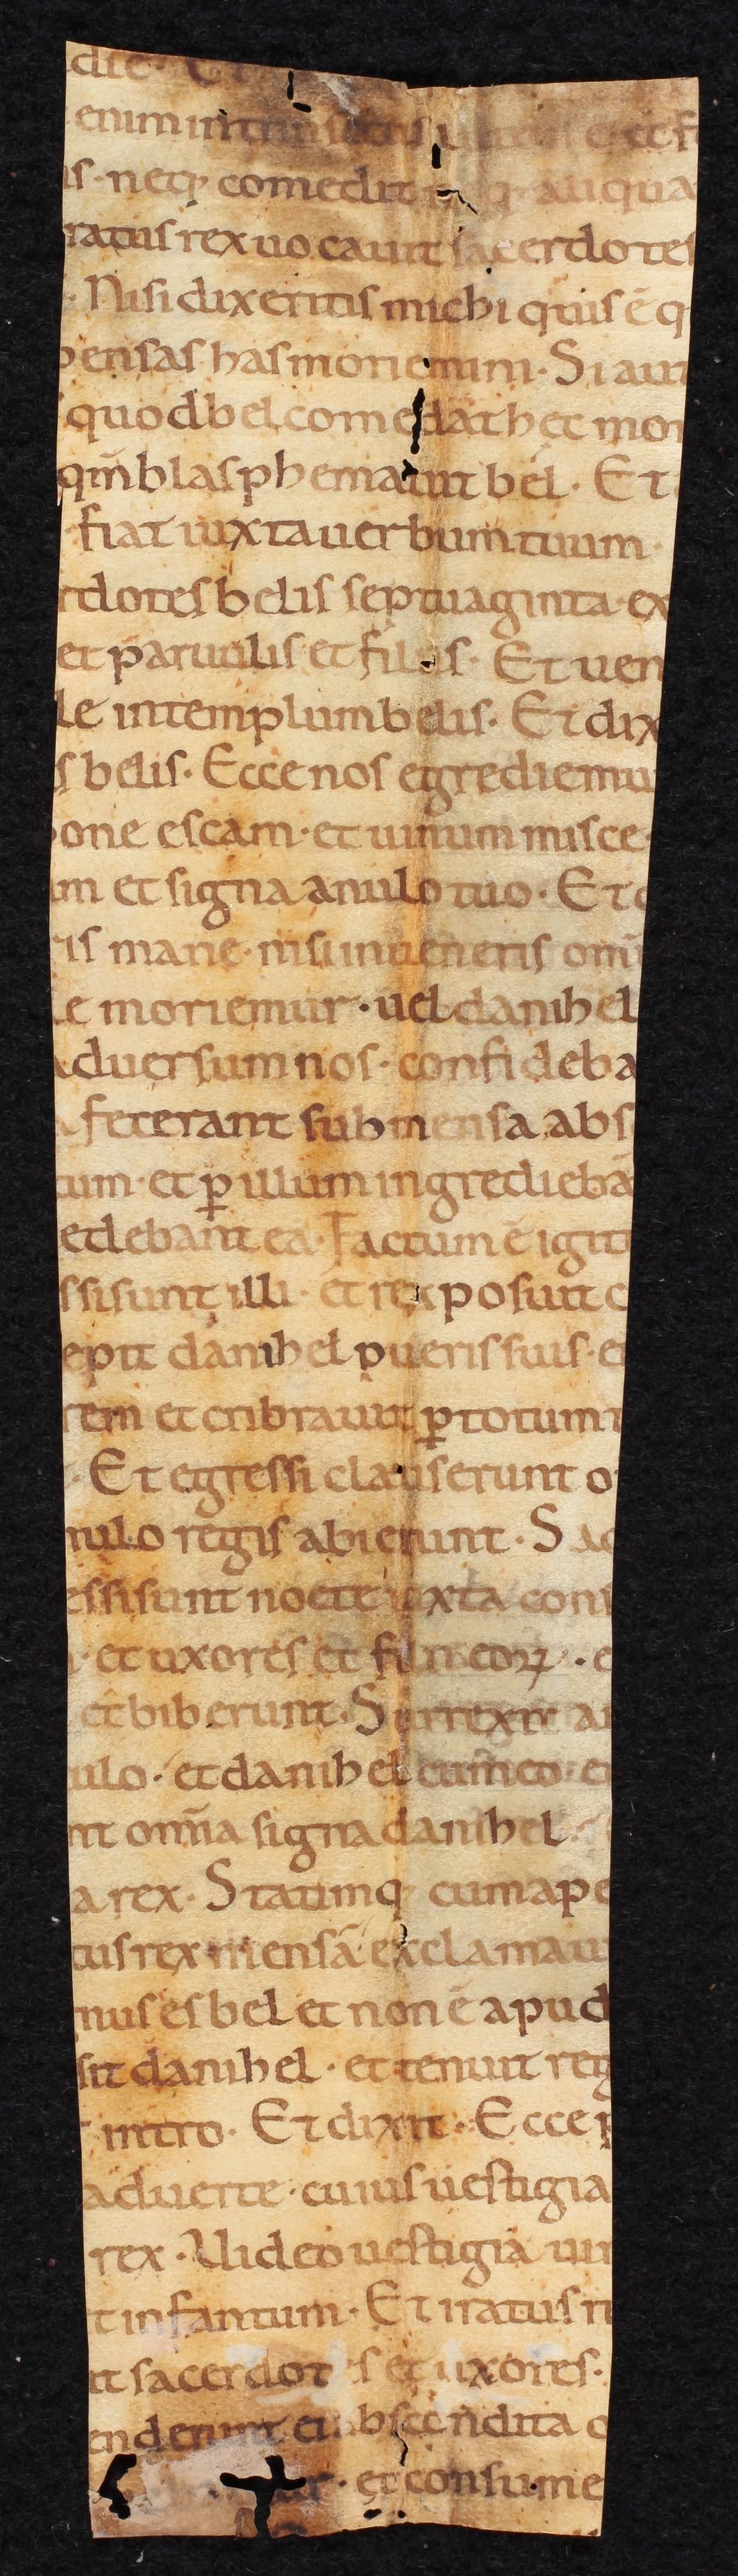 die. Et
enim intrinsecus luteus ẽ. et f
is. neq; comedit neq; aliqua
ratus rex uocauit sacerdotes
. Nisi dixeritis michi quis ẽ q
pensas has moriemini. Si aut
quod bel comedat hęc mor
qm̃ blasphemauit bel. Et
fiat iuxta uerbum tuum.
rdotes belis septuaginta. ex
et paruulis et filiis. Et uen
le in templum belis. Et dix
s belis. Ecce nos egrediemu
pone escam. et uinum misce.
um et signa anulo tuo. Et c
ris mane. nisi inueneris om̃
le moriemur. uel danihel
aduersum nos. confideba
a fecerant sub mensa abs
tum. et ꝑ illum ingrediebã
edebant ea. Factum ẽ igit
ssi sunt illi. et rex posuit c
epit danihel pueris suis. et
rem et cribrauit ꝑ totum t
. Et egressi clauserunt o
nulo regis abierunt. Sac
essi sunt nocte iuxta cons
. et uxores et filii eoꝝ. e
et biberunt. Surrexit a
ulo. et danihel cum eo. et
nt om̃ia signa danihel.
a rex. Statimq; cum ape
tus rex mensã. exclamaui
nus es bel et non ẽ apud
sit danihel. et tenuit reg
intro. Et dixit. Ecce p
aduerte. cuius uestigia
rex. Uideo uestigia uir
t infantum. Et iratus r
it sacerdotes et uxores.
enderunt ei abscondita o
. et consume